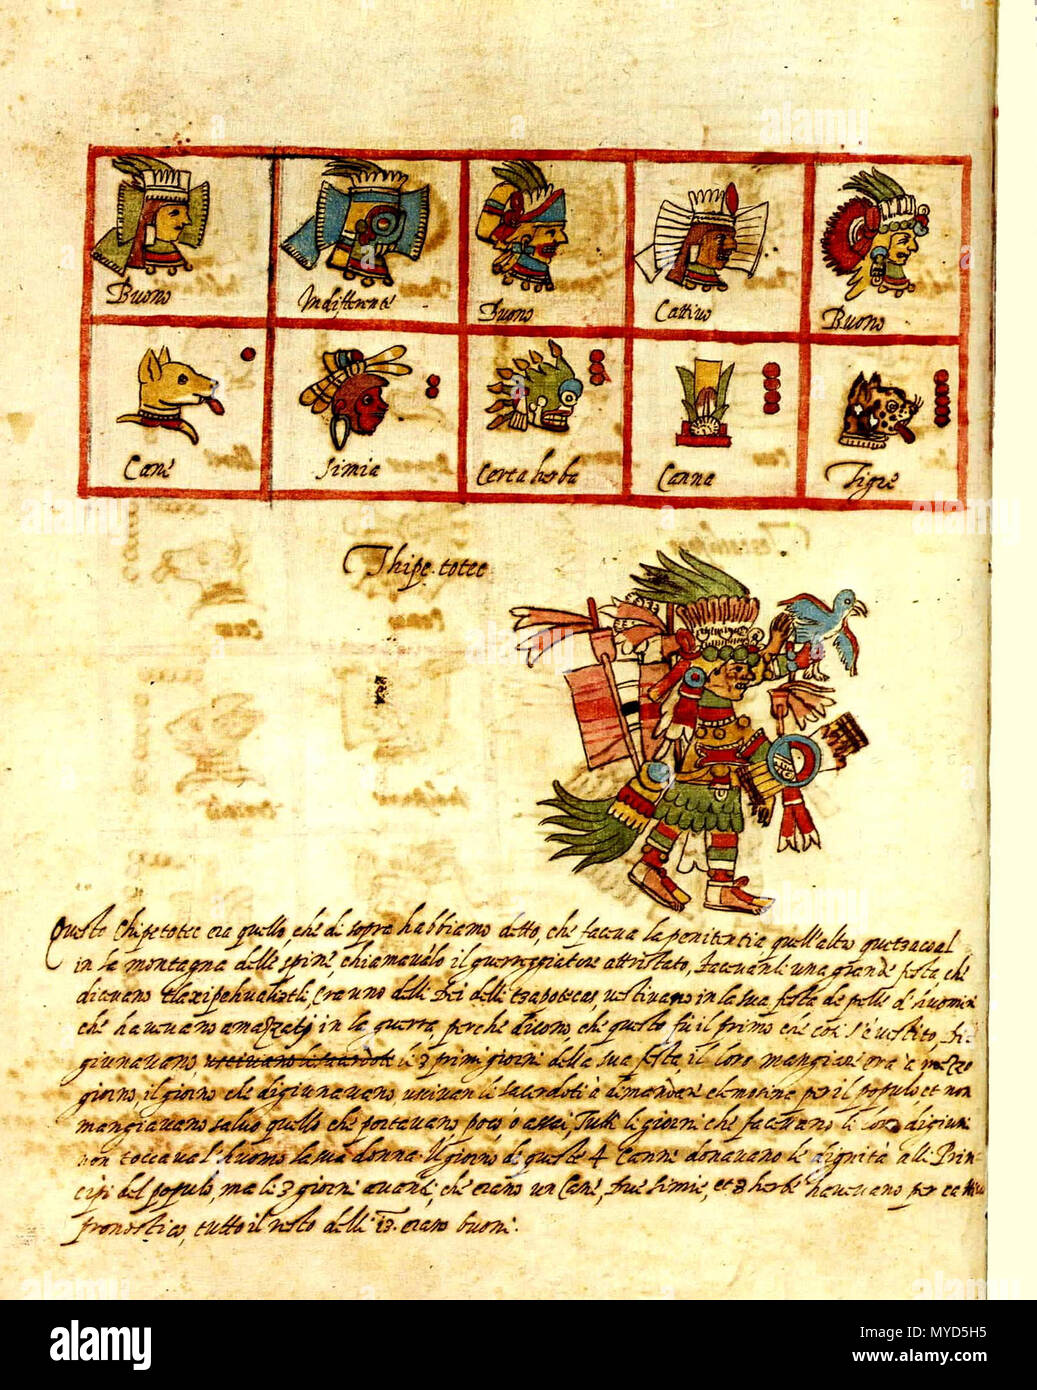 Buono
Indifferente
Buono
Cattivo
Buono
Cané
Simia
Certa herba
Canna
Tigre
Thipe. totec
Questo Chipetotec era quello, ché di sopra habbiamo detto, ché faceua la penitentia quell'altro quetzacoal
in la montagna dellé spiné, chiamauálo il guerreggiatore attristato, faceuanli una grandé festa, ché
diceuano tlaxipehualiztli, era uno delli Dei delli tzapotecas, uestiuano in la sua festa de pellé d'huomini
ché haueuano amazzati in la guerra, perché dicono ché questo fú il primo ché cosi s'é uestito, Di-
giunauano li 3 primi giorni della sua festa, il loro mangiare era á mezzo
giorno, il giorno ché digiunauano usciuan li sacerdoti á domandaré elemosina per il populo et non
mangiauano saluo quello ché portauano, poco ó assai, Tutti li giorni ché faceuano li loro digiuni
non toccaua l'huomo la sua donna. Il giorno di questé 4 Canné donauano lé dignitá alli Prin-
cipi del populo, ma li 3 giorni auanti, ché erano un Cané, Due Simié, et 3 herbé haueuano per cattiuo
pronostico, tutto il resto delli 13. erano buoni.
alamy
Image ID: MYD5H5
www.alamy.com